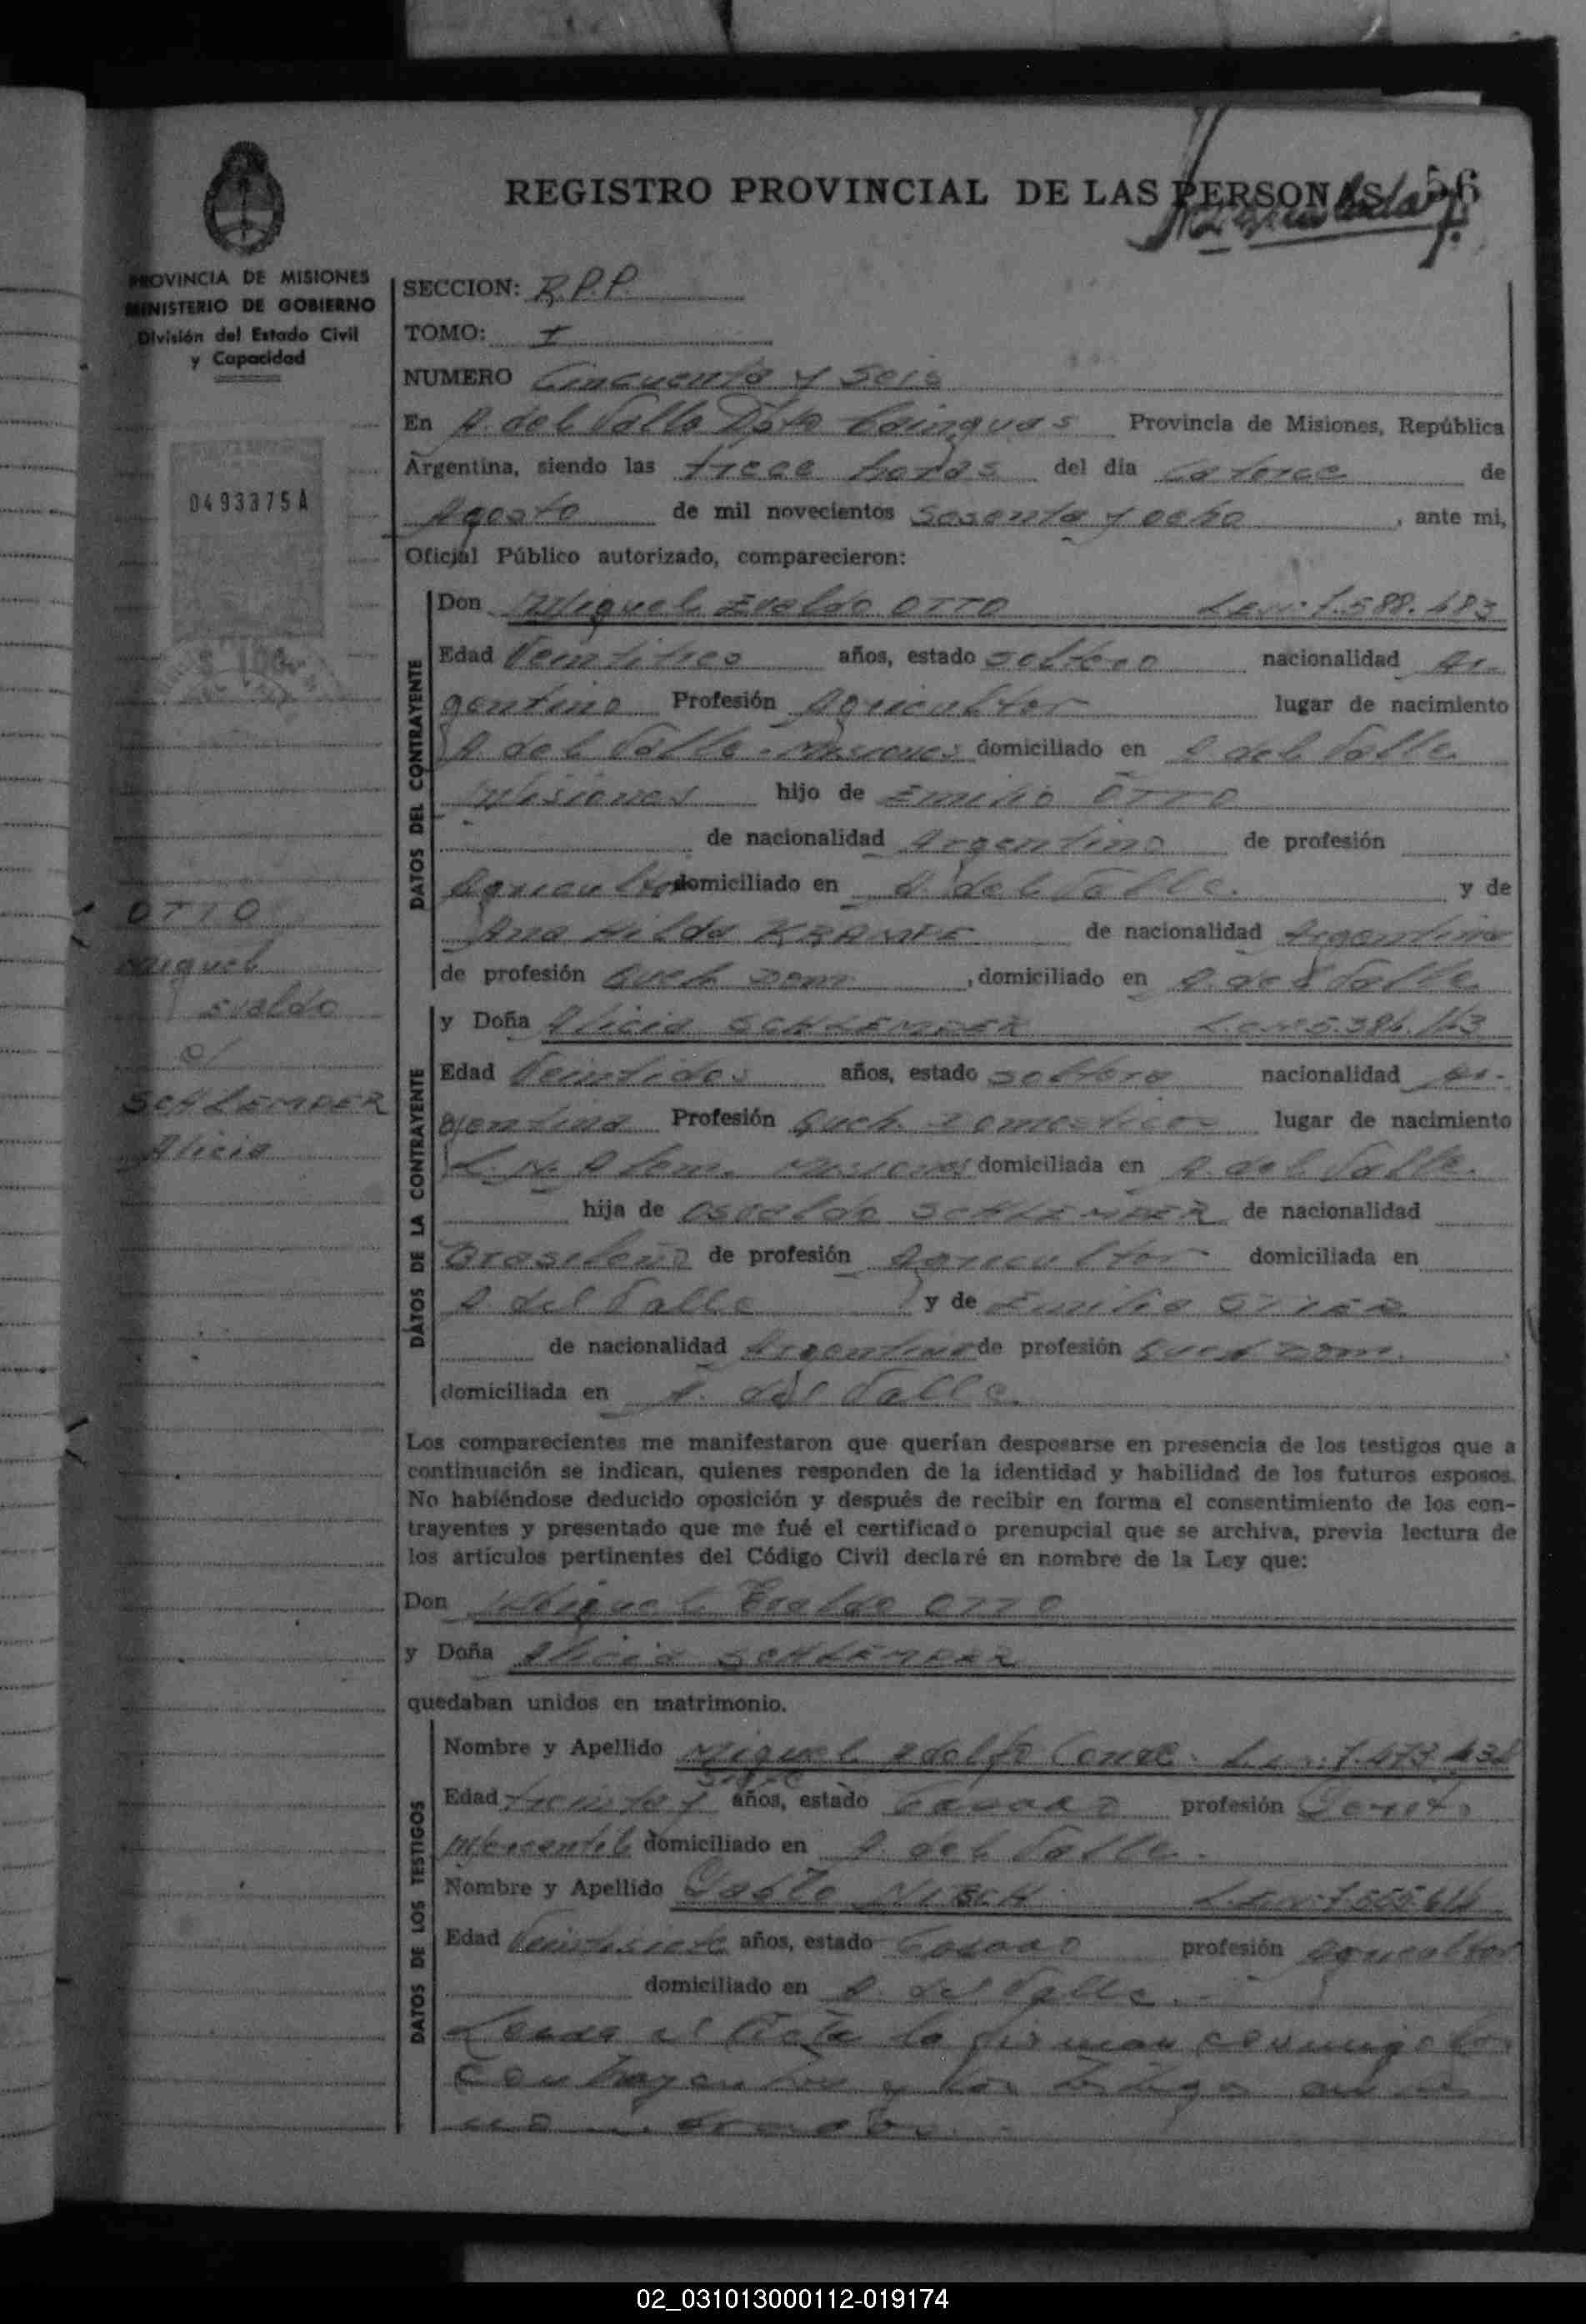 REGISTRO PROVINCIAL DE LAS PERSONAS 56
PROVINCIA DE MISIONES
MINISTERIO DE GOBIERNO
División del Estado Civil
y Capacidad
0493375A
OTTO
Miguel
Evaldo
c/
SCHLEMPER
Alicia
SECCION: R.P.P.
TOMO: I
NUMERO Cincuenta y Seis
En A. del Valle Dpto Cainguas Provincia de Misiones, República
Argentina, siendo las trece horas del día catorce de
Agosto de mil novecientos sesenta y ocho, ante mi,
Oficial Público autorizado, comparecieron:
DATOS DEL CONTRAYENTE
Don Miguel Evaldo OTTO L.E.Nº 7.588.483
Edad Veintitres años, estado soltero nacionalidad Ar-
gentino Profesión Agricultor lugar de nacimiento
A. del Valle - Misiones domiciliado en A. del Valle
Misiones hijo de Emilio OTTO
de nacionalidad Argentino de profesión
Agricultor domiciliado en A. del Valle. y de
Ana Hilda de nacionalidad Argentina
de profesión Queh Dom, domiciliado en A. del Valle
DATOS DE LA CONTRAYENTE
y Doña Alicia SCHLEMPER L.C.Nº 5.386.163
Edad Veintidos años, estado soltera nacionalidad Ar-
gentina Profesión Queh. Domesticos lugar de nacimiento
L. N. Alem. Misiones domiciliada en A. del Valle.
hija de Osvaldo SCHLEMPER de nacionalidad
Brasileño de profesión Agricultor domiciliada en
A. del Valle y de Emilia
de nacionalidad Argentina de profesión Queh Dom.
domiciliada en A. del Valle.
Los comparecientes me manifestaron que querían desposarse en presencia de los testigos que a
continuación se indican, quienes responden de la identidad y habilidad de los futuros esposos.
No habiéndose deducido oposición y después de recibir en forma el consentimiento de los con-
trayentes y presentado que me fué el certificado prenupcial que se archiva, previa lectura de
los artículos pertinentes del Código Civil declaré en nombre de la Ley que:
Don Miguel Evaldo OTTO
y Doña Alicia SCHLEMPER
quedaban unidos en matrimonio.
DATOS DE LOS TESTIGOS
Nombre y Apellido Miguel Adolfo L.E.Nº 7.473.
Edad treinta y siete años, estado Casado profesión Perito
Mercantil domiciliado en A. del Valle.
Nombre y Apellido Pablo L.E.Nº 7.555.
Edad Veintisiete años, estado Casado profesión Agricultor
domiciliado en A. del Valle.
Leida el Acta la firman conmigo los
contrayentes y los testigos
02_031013000112-019174